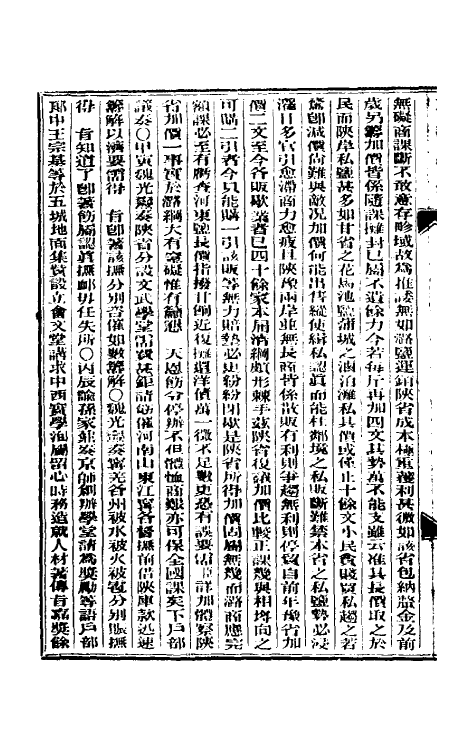 無礙商課斷不敢意存畛域故為推諉無如潞鹽運銷陝省成本極重獲利甚微如該省包納釐金及前
歲另籌加價皆係隨課攤封已屬不遺餘力今若每斤再加四文其勢萬不能支雖云准其長價取之於
民而陝岸私鹽甚多如甘省之花馬池鹽蒲城之滷泊灘私其價或僅止十餘文小民貪賤買私趨之若
鶩即減價尚難與敵況加價何能出售縱使緝私認真而能杜鄰境之私販斷難禁本省之私鹽勢必浸
灌日多官引愈滯商力愈疲且陝豫兩岸並無長商皆係散販有利則爭趨無利則停貿自前年豫省加
價二文至今各販歇業者已四十餘家本屆清綱頗形棘手茲陝省復議加價比較正課幾與相埒向之
可購二引者今只能購一引該販等無力賠墊必更紛紛閉歇是陝省所得加價尚屬無幾而潞商應完
額課必至有虧查河東鹽長價指撥甘餉近復攤還洋債萬一徵不足數更恐有誤要需 詳加體察陝
省加價一事實於潞綱大有窒礙惟有籲懇 天恩飭令停辦不但體恤商艱亦可保全國課矣下戶部
議奏〇甲寅魏光燾奏陝省分設文武學堂需費甚鉅請飭催河南山東江寧各督撫前借陝庫款迅速
籌解以濟要需得 旨即著該撫分別咨催如數籌解〇魏光燾奏寧羌各州被水被火被雹分別賑撫
得 旨知道了即著飭屬認真撫卹毋任失所〇丙辰諭孫家鼐奏京師創辦學堂請為獎勵等語戶部
郎中王宗基等於五城地面集貲設立會文堂講求中西實學洵屬留心時務造就人材著傳旨嘉獎餘